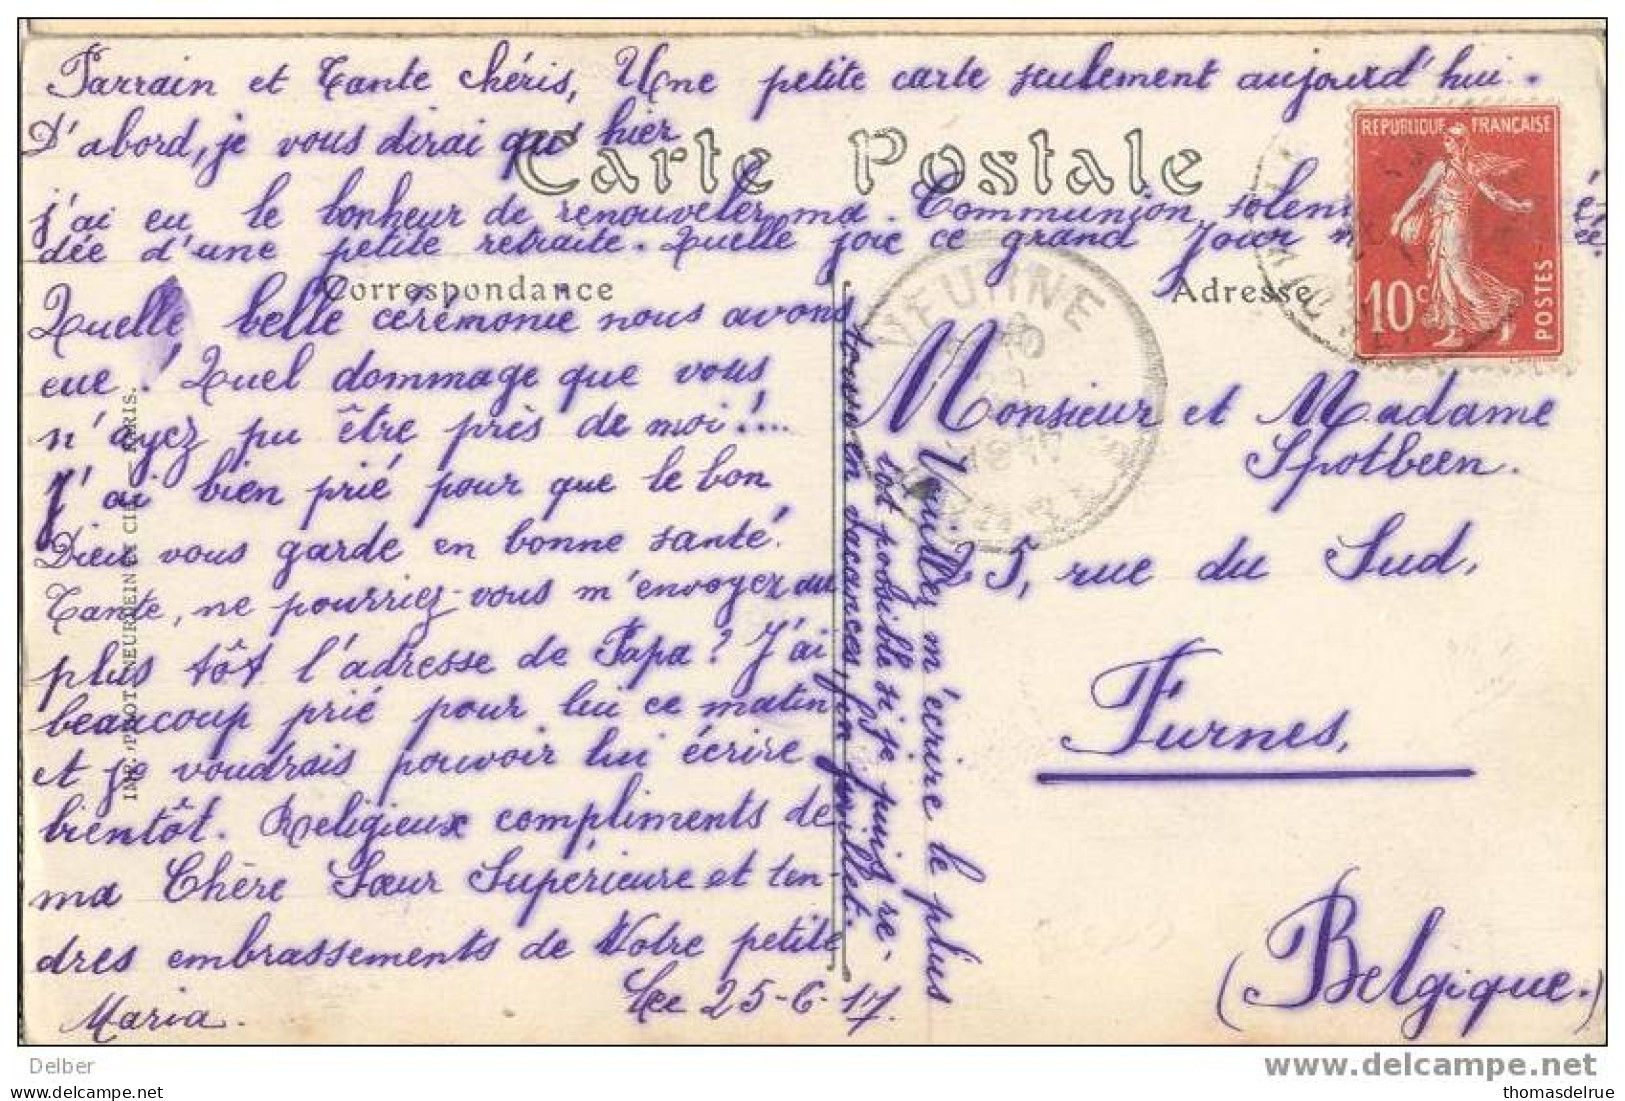 Parrain et Tante chéris, Une petite carte seulement aujourd'hui.
D'abord, je vous dirai qu'hier
Carte Postale
j'ai eu le bonheur de renouveler ma Communion solen
dée d'une petite retraite. Quelle joie ce grand jour
Correspondance
Quelle belle cérémonie nous avons
eue! Quel dommage que vous
n'ayez pu être près de moi!...
J'ai bien prié pour que le bon
Dieu vous garde en bonne santé.
Tante, ne pourriez-vous m'envoyez au
plus tôt l'adresse de Papa? J'ai
beaucoup prié pour lui ce matin
et je voudrais pouvoir lui écrire
bientôt. Religieux compliments de
ma Chère Sœur Supérieure et ten-
dres embrassements de Votre petite
Maria.
Le 25-6-17.
Veuillez m'écrire le plus
tôt possible si je puis re-
tourner en vacances, fin juillet.
IMP. PHOT. NEURDEIN ET CIE - PARIS.
Adresse
Monsieur et Madame
Spotbeen.
25, rue du Sud,
Furnes,
(Belgique.)
VEURNE
REPUBLIQUE FRANÇAISE
10c
POSTES
Delber
www.delcampe.net
thomasdelrue